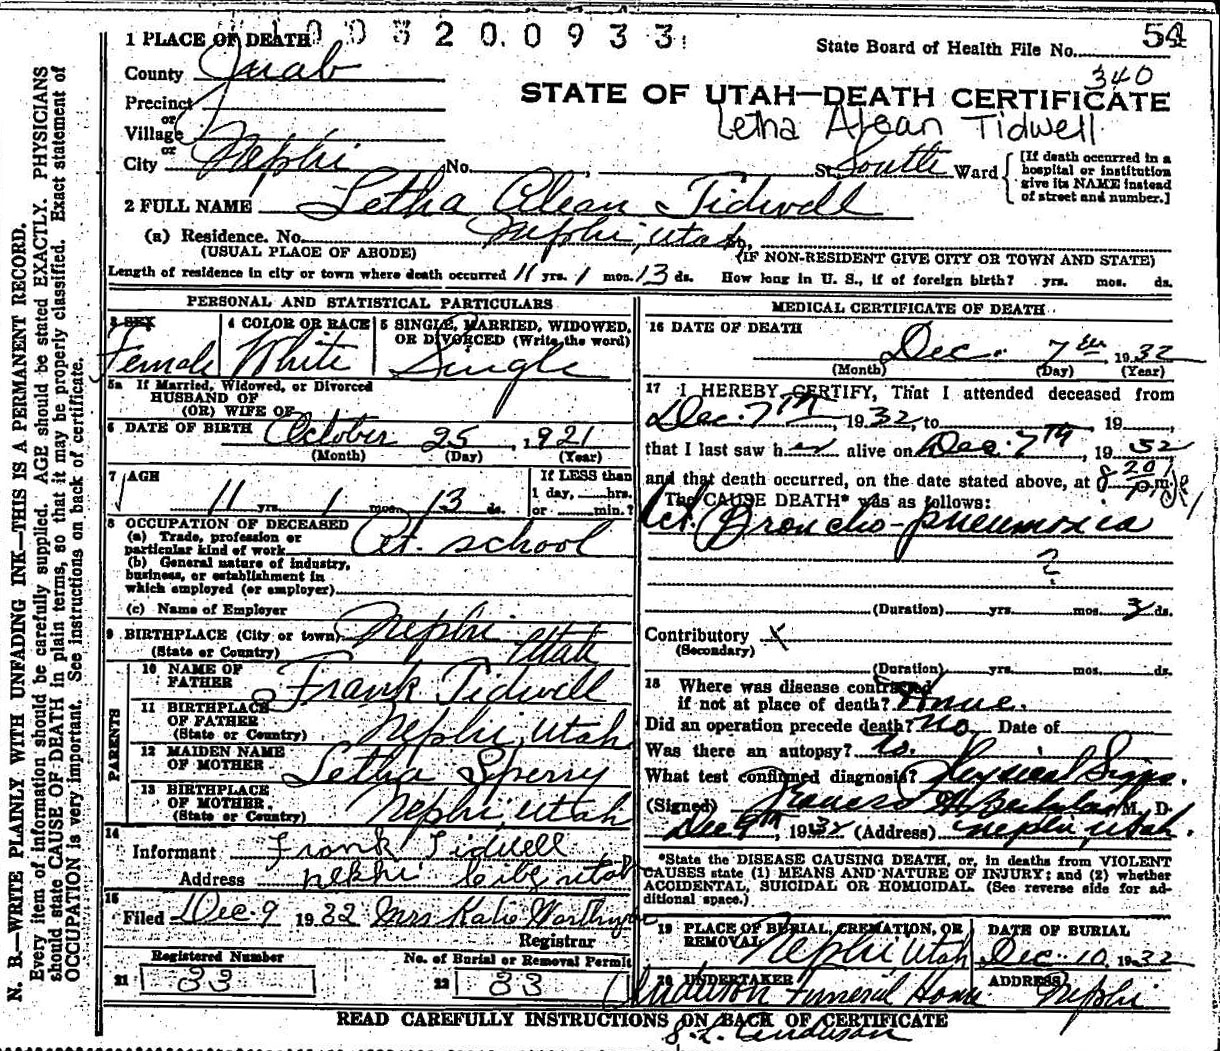 1003200933 54
1 PLACE OF DEATH State Board of Health File No.
County Juab 340
STATE OF UTAH—DEATH CERTIFICATE
Precinct
or
Letha Alean Tidwell
Village
or
City Nephi No. St. South Ward [If death occurred in a hospital or institution give its NAME instead of street and number.]
2 FULL NAME Letha Alean Tidwell
(a) Residence. No. Nephi, Utah St.,
(USUAL PLACE OF ABODE) (IF NON-RESIDENT GIVE CITY OR TOWN AND STATE)
Length of residence in city or town where death occurred 11 yrs. 1 mos. 13 ds. How long in U. S., if of foreign birth? yrs. mos. ds.
PERSONAL AND STATISTICAL PARTICULARS
3 SEX 4 COLOR OR RACE 5 SINGLE, MARRIED, WIDOWED, OR DIVORCED (Write the word)
Female White Single
5a If Married, Widowed, or Divorced
HUSBAND OF
(OR) WIFE OF
6 DATE OF BIRTH October 25, 1921
(Month) (Day) (Year)
7 AGE If LESS than
11 yrs. 1 mos. 13 ds. 1 day, hrs.
or min.?
8 OCCUPATION OF DECEASED
(a) Trade, profession or
particular kind of work At. school
(b) General nature of industry,
business, or establishment in
which employed (or employer)
(c) Name of Employer
9 BIRTHPLACE (City or town) Nephi
(State or Country) Utah
PARENTS
10 NAME OF
FATHER Frank Tidwell
11 BIRTHPLACE
OF FATHER Nephi, Utah
(State or Country)
12 MAIDEN NAME
OF MOTHER Letha Sperry
13 BIRTHPLACE
OF MOTHER Nephi, Utah
(State or Country)
14
Informant Frank Tidwell
Address nephi city utah
15
Filed Dec 9 1932 Mrs Katie
Registrar
Registered Number No. of Burial or Removal Permit
21 33 22 33
MEDICAL CERTIFICATE OF DEATH
16 DATE OF DEATH
Dec. 7th 1932
(Month) (Day) (Year)
17 I HEREBY CERTIFY, That I attended deceased from
Dec. 7TH, 1932, to , 19 ,
that I last saw her alive on Dec. 7TH, 1932
and that death occurred, on the date stated above, at 8 20 p m.
The CAUSE DEATH* was as follows:
Broncho-pneumonia
?
(Duration) yrs. mos. 3 ds.
Contributory x
(Secondary)
(Duration) yrs. mos. ds.
18 Where was disease contracted
if not at place of death? Home.
Did an operation precede death? no Date of
Was there an autopsy? no.
What test confirmed diagnosis? Physical Signs.
(Signed) M. D.
Dec 9th, 1932 (Address) nephi, utah.
*State the DISEASE CAUSING DEATH, or, in deaths from VIOLENT
CAUSES state (1) MEANS AND NATURE OF INJURY; and (2) whether
ACCIDENTAL, SUICIDAL OR HOMICIDAL. (See reverse side for ad-
ditional space.)
19 PLACE OF BURIAL, CREMATION, OR REMOVAL DATE OF BURIAL
Nephi, Utah Dec 10, 1932
20 UNDERTAKER ADDRESS
Anderson Funeral Home Nephi
READ CAREFULLY INSTRUCTIONS ON BACK OF CERTIFICATE
Anderson
N. B.—WRITE PLAINLY WITH UNFADING INK—THIS IS A PERMANENT RECORD.
Every item of information should be carefully supplied. AGE should be stated EXACTLY. PHYSICIANS
should state CAUSE OF DEATH in plain terms, so that it may be properly classified. Exact statement of
OCCUPATION is very important. See instructions on back of certificate.